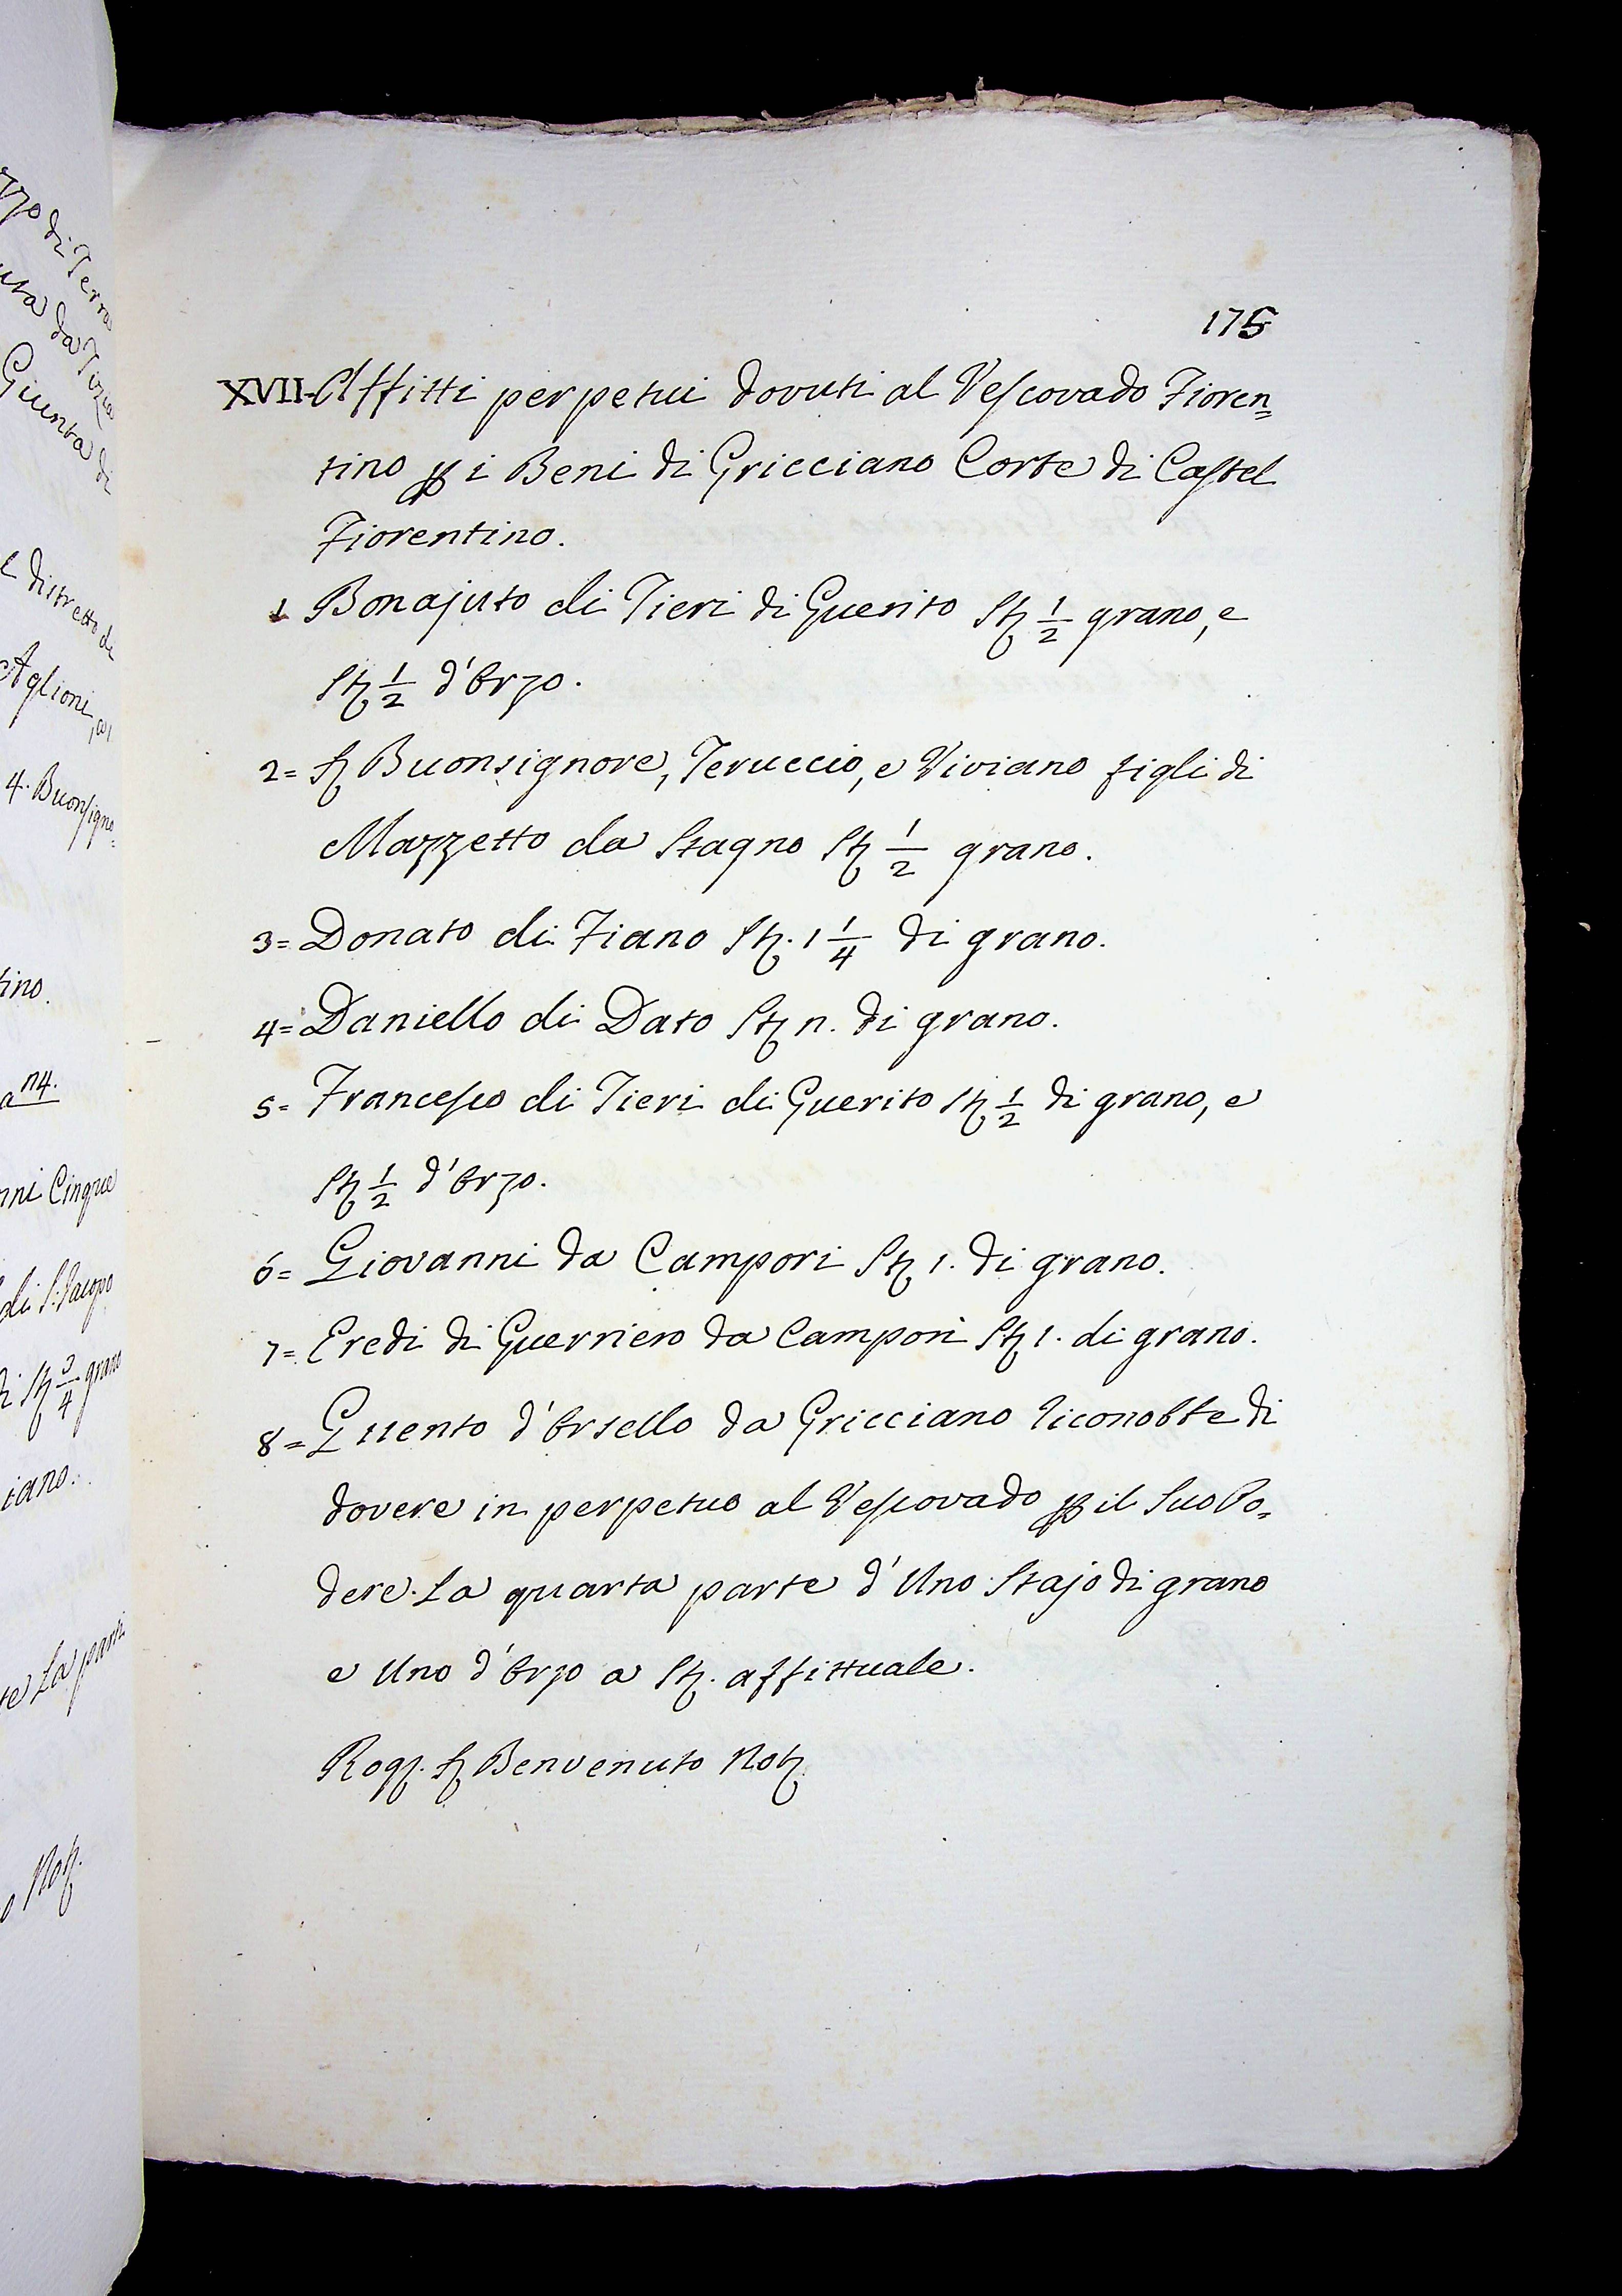 175
XVII. Affitti perpetui dovuti al Vescovado Fioren=
tino p i Beni di Gricciano Corte di Castel
Fiorentino.
1 Bonajuto di Tieri di Guerito St 1/2 grano, e
St 1/2 d'Orzo.
2= S Buonsignore, Teruccio, e Viviano figli di
Mazzetto da Stagno St 1/2 grano.
3= Donato di Fiano St. 1 1/4 di grano.
4= Daniello di Dato St n. di grano.
5= Francesco di Tieri di Guerito St 1/2 di grano, e
St 1/2 d'Orzo.
6= Giovanni da Campori St 1. di grano.
7= Eredi di Guerriero da Campori St 1. di grano.
8= Guento d'Orsello da Gricciano riconobbe di
dovere in perpetuo al Vescovado p il suo Po=
dere. La quarta parte d'Uno Stajo di grano
e Uno d'Orzo a St. affittuale.
Rog. S Benvenuto Not
di Terra
da
Giunta di
e distretto di
Aglioni,
4. Buonsigno=
n4.
Cinque
di S. Jacopo
St 3/4 grano
La parte
Not.